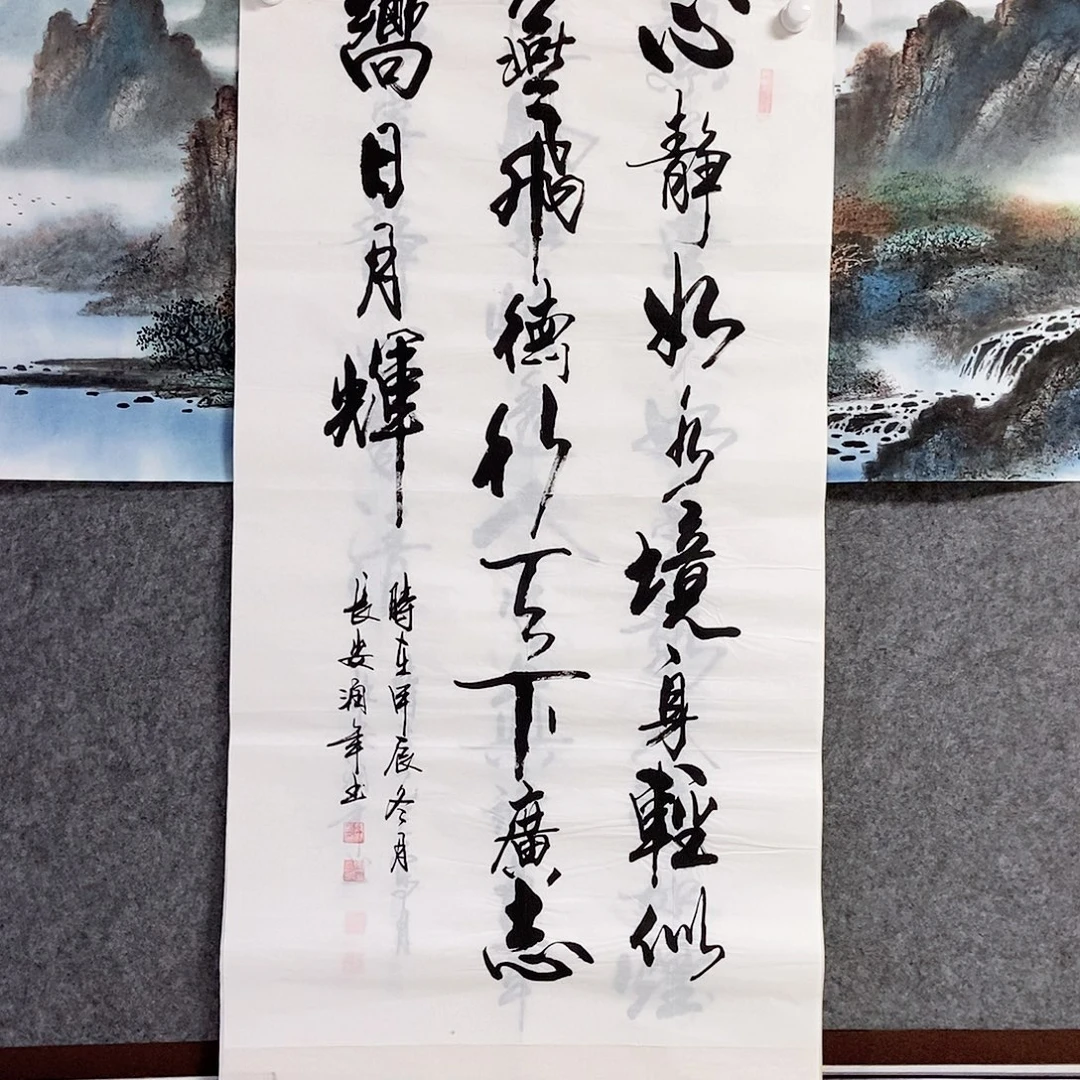 心靜如水境身輕似
燕飛德行天下廣志
嚮日月輝
時在甲辰冬月
長安潤年書